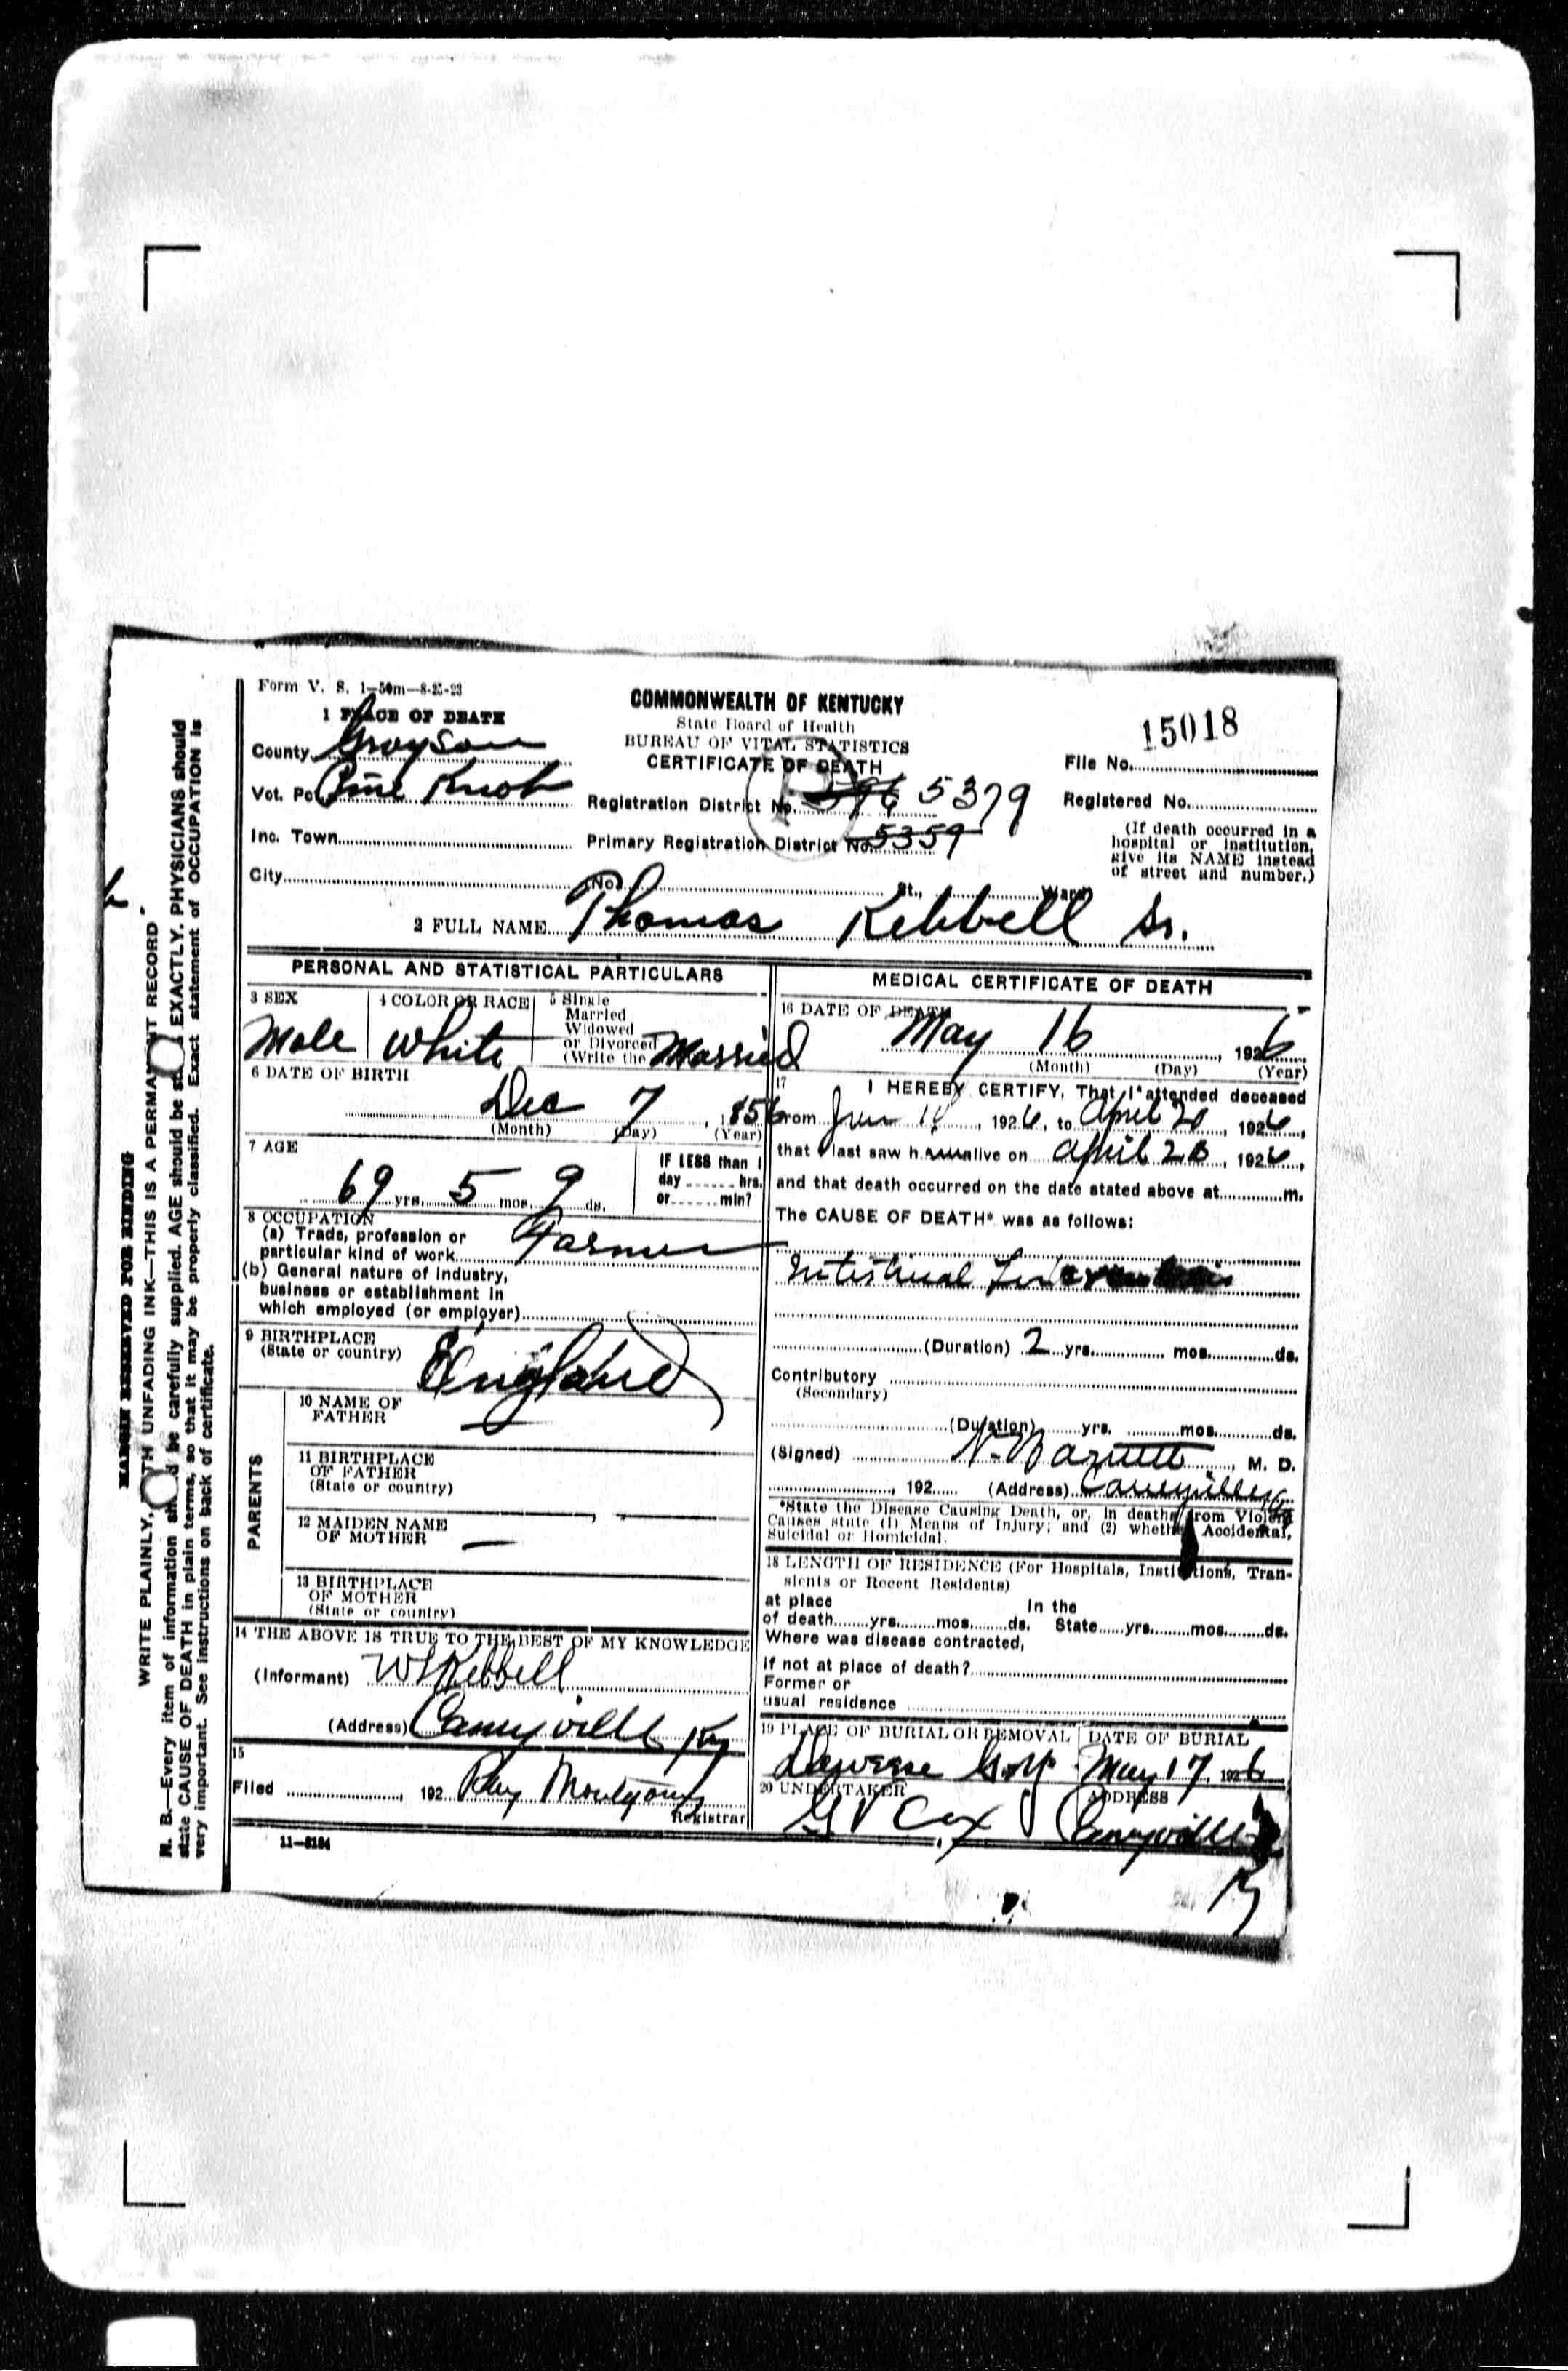 Form V. S. 1—50m—8-25-23
1 PLACE OF DEATH
County Grayson
Vot. Pct Pine Knob
Inc. Town
City
COMMONWEALTH OF KENTUCKY
State Board of Health
BUREAU OF VITAL STATISTICS
CERTIFICATE OF DEATH
Registration District No. 596 5379
Primary Registration District No. 5359
No. St., Ward
15018
File No.
Registered No.
(If death occurred in a
hospital or institution,
give its NAME instead
of street and number.)
2 FULL NAME Thomas Kebbell Sr.
PERSONAL AND STATISTICAL PARTICULARS
3 SEX
Male
4 COLOR OR RACE
White
5 Single
Married
Widowed
or Divorced
(Write the Married
6 DATE OF BIRTH
Dec 7, 1856
(Month) (Day) (Year)
7 AGE
69 yrs. 5 mos. 9 ds.
IF LESS than 1
day hrs.
or min?
8 OCCUPATION
(a) Trade, profession or
particular kind of work Farmer
(b) General nature of industry,
business or establishment in
which employed (or employer)
9 BIRTHPLACE
(State or country) England
PARENTS
10 NAME OF
FATHER —
11 BIRTHPLACE
OF FATHER
(State or country)
12 MAIDEN NAME
OF MOTHER —
13 BIRTHPLACE
OF MOTHER
(State or country)
14 THE ABOVE IS TRUE TO THE BEST OF MY KNOWLEDGE
(Informant) W Kebbell
(Address) Caneyville Ky
15
Filed , 192 Ray Montgomery
Registrar
11—3184
MEDICAL CERTIFICATE OF DEATH
16 DATE OF DEATH
May 16, 1926
(Month) (Day) (Year)
17 I HEREBY CERTIFY, That I attended deceased
from , 1926, to April 20, 1926,
that I last saw h alive on April 20, 1926,
and that death occurred on the date stated above at m.
The CAUSE OF DEATH* was as follows:
Intestinal
(Duration) 2 yrs. mos. ds.
Contributory
(Secondary)
(Duration) yrs. mos. ds.
(Signed) N. Barnett, M. D.
, 192 (Address) Caneyville Ky
*State the Disease Causing Death, or, in deaths from Violent
Causes state (1) Means of Injury; and (2) whether Accidental,
Suicidal or Homicidal.
18 LENGTH OF RESIDENCE (For Hospitals, Institutions, Tran-
sients or Recent Residents)
at place In the
of death yrs. mos. ds. State yrs. mos. ds.
Where was disease contracted,
if not at place of death?
Former or
usual residence
19 PLACE OF BURIAL OR REMOVAL
Deweese
DATE OF BURIAL
May 17, 1926
20 UNDERTAKER
G V Cox
ADDRESS
Caneyville
Ky
MARGIN RESERVED FOR BINDING
WRITE PLAINLY, WITH UNFADING INK—THIS IS A PERMANENT RECORD
N. B.—Every item of information should be carefully supplied. AGE should be stated EXACTLY. PHYSICIANS should
state CAUSE OF DEATH in plain terms, so that it may be properly classified. Exact statement of OCCUPATION is
very important. See instructions on back of certificate.